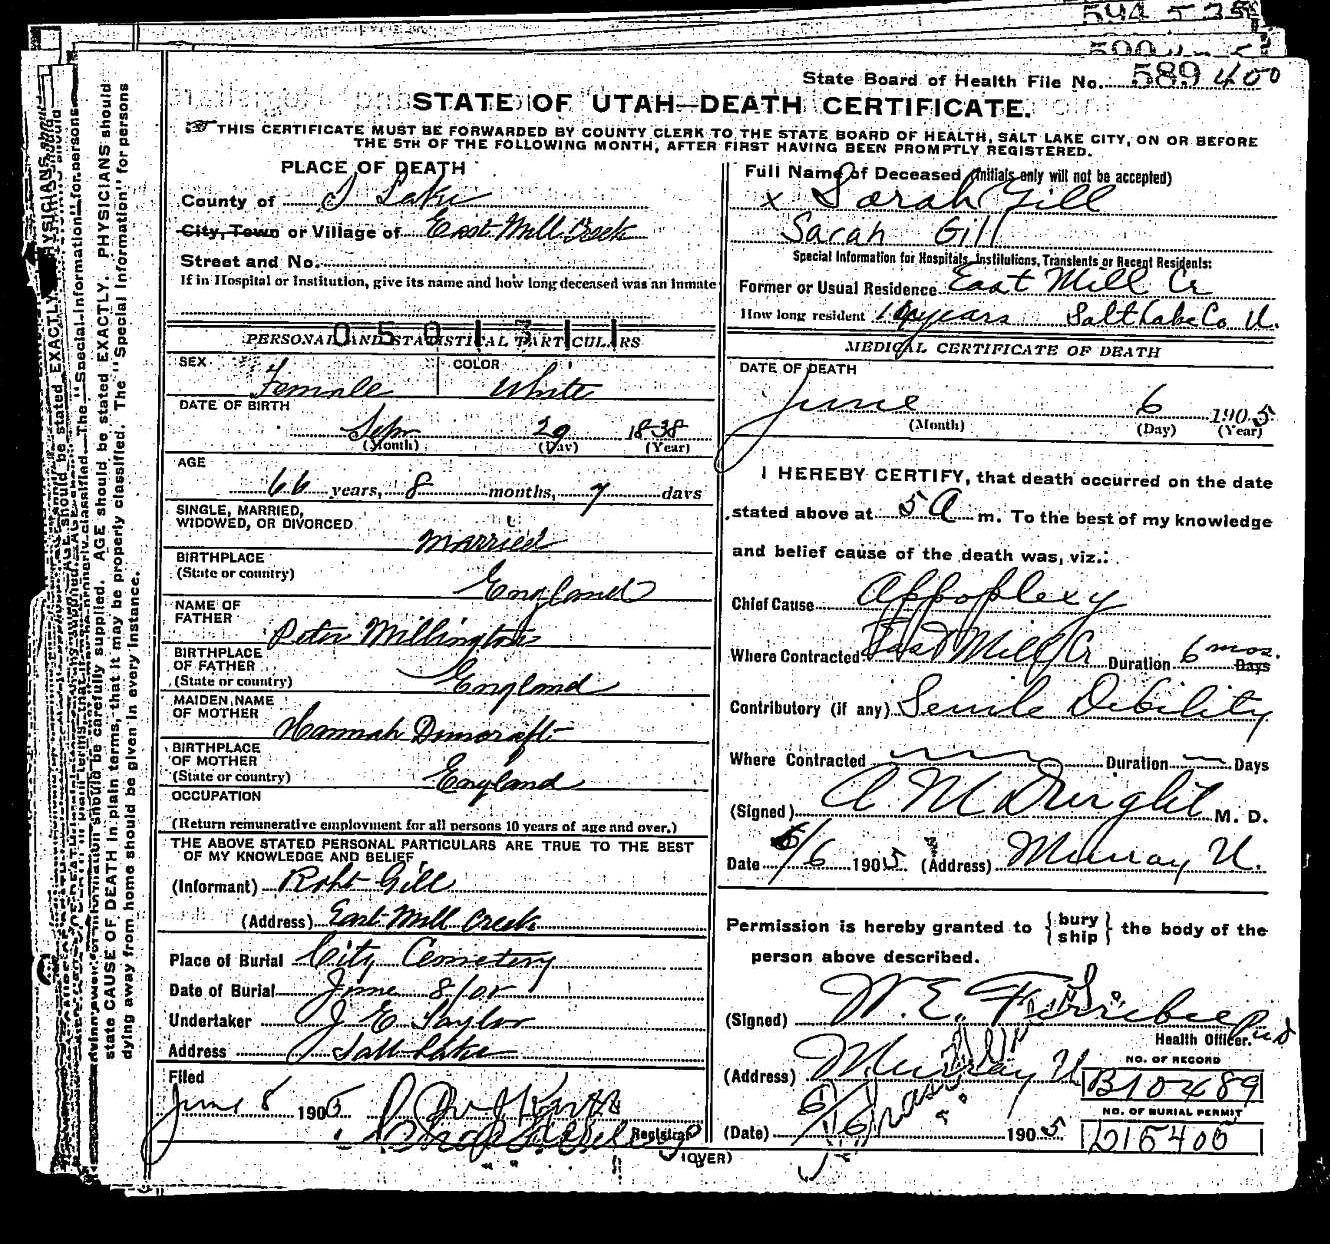 State Board of Health File No. 589 400
STATE OF UTAH—DEATH CERTIFICATE.
THIS CERTIFICATE MUST BE FORWARDED BY COUNTY CLERK TO THE STATE BOARD OF HEALTH, SALT LAKE CITY, ON OR BEFORE
THE 5TH OF THE FOLLOWING MONTH, AFTER FIRST HAVING BEEN PROMPTLY REGISTERED.
PLACE OF DEATH
County of S Lake
City, Town or Village of East Mill Creek
Street and No.
If in Hospital or Institution, give its name and how long deceased was an inmate
PERSONAL AND STATISTICAL PARTICULARS
SEX Female COLOR White
DATE OF BIRTH
Sepr 29 1838
(Month) (Day) (Year)
AGE
66 years, 8 months, 7 days
SINGLE, MARRIED,
WIDOWED, OR DIVORCED
Married
BIRTHPLACE
(State or country) England
NAME OF
FATHER Peter Millington
BIRTHPLACE
OF FATHER
(State or country) England
MAIDEN NAME
OF MOTHER Hannah
BIRTHPLACE
OF MOTHER
(State or country) England
OCCUPATION
(Return remunerative employment for all persons 10 years of age and over.)
THE ABOVE STATED PERSONAL PARTICULARS ARE TRUE TO THE BEST
OF MY KNOWLEDGE AND BELIEF
(Informant) Robt Gill
(Address) East Mill Creek
Place of Burial City Cemetery
Date of Burial June 8/05
Undertaker J E Taylor
Address Salt Lake
Filed
June 8 1905
Registrar
(OVER)
Full Name of Deceased (Initials only will not be accepted)
x Sarah Gill
Sarah Gill
Special Information for Hospitals, Institutions, Transients or Recent Residents:
Former or Usual Residence East Mill Cr
How long resident years Salt Lake Co U.
MEDICAL CERTIFICATE OF DEATH
DATE OF DEATH
June 6 1905
(Month) (Day) (Year)
I HEREBY CERTIFY, that death occurred on the date
stated above at 5 A m. To the best of my knowledge
and belief cause of the death was, viz.:
Chief Cause Appoplexy
Where Contracted East Mill Cr Duration 6 mos. Days
Contributory (if any) Senile Debility
Where Contracted Duration Days
(Signed) M. D.
Date 6/6 1905 (Address) Murray U.
Permission is hereby granted to {bury
ship} the body of the
person above described.
(Signed) W. E.
Health Officer.
(Address) Murray U
NO. OF RECORD
B10489
NO. OF BURIAL PERMIT
(Date) 6/6 1905
D15400
state CAUSE OF DEATH in plain terms, that it may be properly classified. The "Special Information" for persons
dying away from home should be given in every instance.